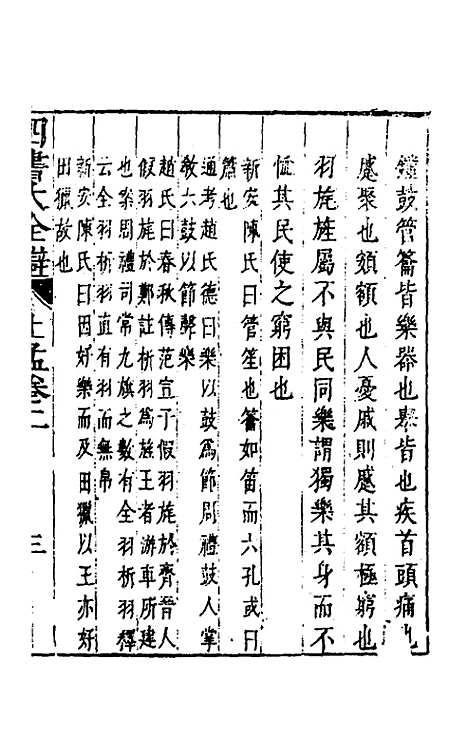 鐘鼓管籥皆樂器也舉皆也疾首頭痛也
蹙聚也頞額也人憂戚則蹙其額極窮也
羽旄旌屬不與民同樂謂獨樂其身而不
恤其民使之窮困也
新安陳氏曰管笙也籥如笛而六孔或曰
簫也
通考趙氏德曰樂以鼓爲節周禮鼓人掌
敎六鼓以節聲樂
趙氏曰春秋傳范宣子假羽旄於齊晉人
假羽旄於鄭註析羽爲旌王者游車所建
也案周禮司常九旗之數有全羽析羽釋
云全羽析羽直有羽而無帛
新安陳氏曰因好樂而及田獵以王亦好
田獵故也
四書大全辯
上孟卷二
三